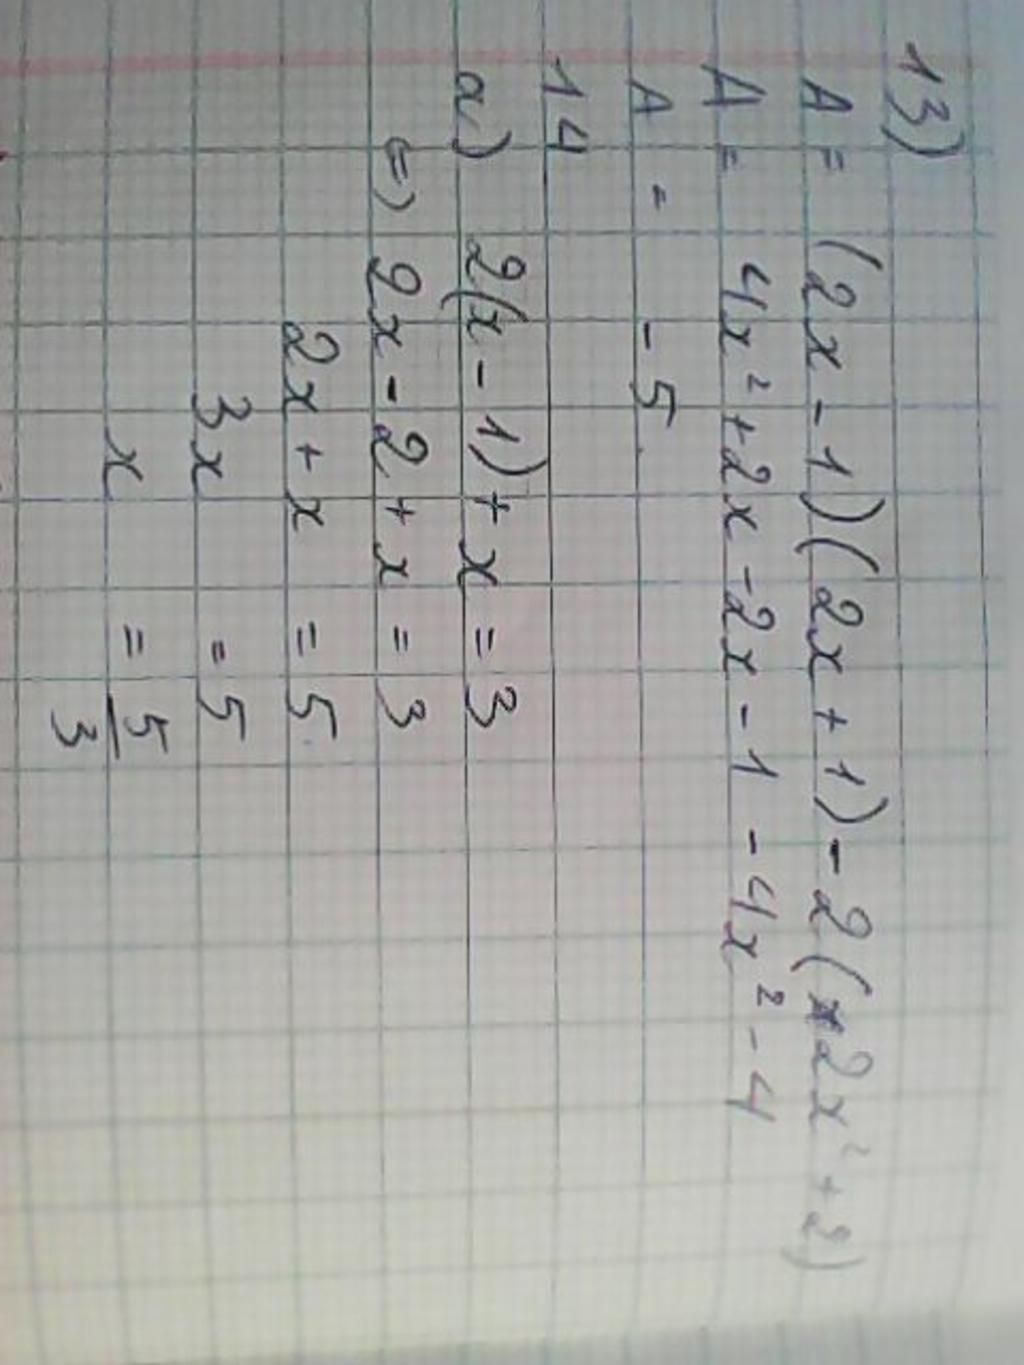 13)
A = (2x - 1)(2x + 1) - 2(2x² + 2)
A = 4x² + 2x - 2x - 1 - 4x² - 4
A = - 5
14
a) 2(x - 1) + x = 3
=> 2x - 2 + x = 3
2x + x = 5
3x = 5
x = 5/3